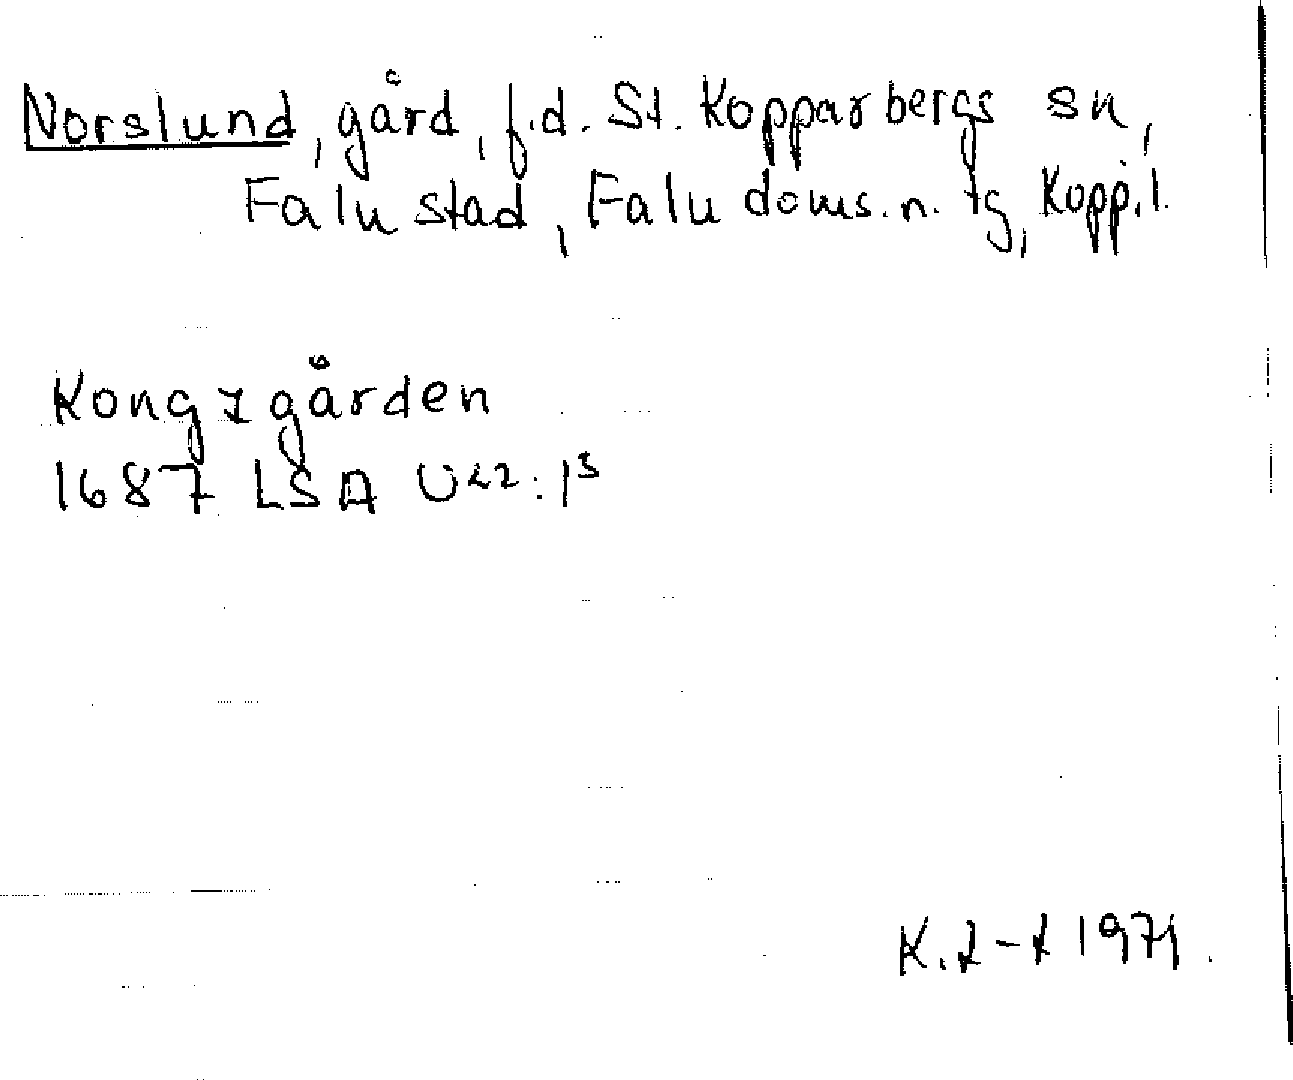 Norslund, gård, f.d. St. Kopparbergs sn,
Falu stad, Falu doms.n. tg, Kopp.l.
Kongzgården
1687 LSA U22:1³
1971.